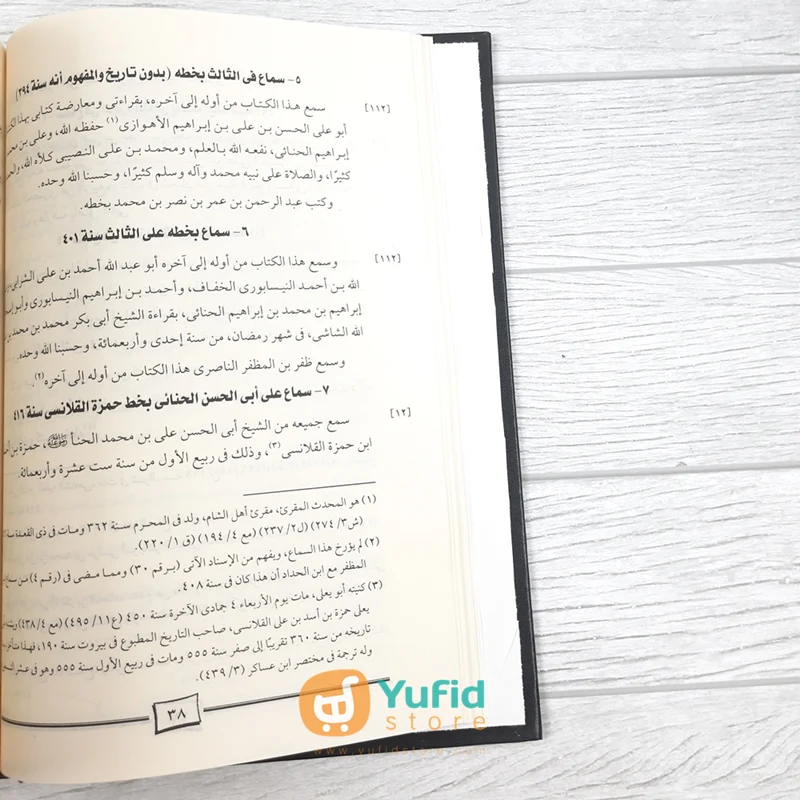 ٥- سماع فى الثالث بخطه (بدون تاريخ والمفهوم أنه سنة ٣٩٤)
[١١٢]
سمع هذا الكتاب من أوله إلى آخره، بقراءتى ومعارضة كتابى بهذا
أبو على الحسن بن على بن إبراهيم الأهوازى(١) حفظه الله، وعلى بن
إبراهيم الحنائى، نفعه الله بالعلم، ومحمد بن على النصيبى كلأه الله،
كثيرًا، والصلاة على نبيه محمد وآله وسلم كثيرًا، وحسبنا الله وحده.
وكتب عبد الرحمن بن عمر بن نصر بن محمد بخطه.
٦- سماع بخطه على الثالث سنة ٤٠١
[١١٢]
وسمع هذا الكتاب من أوله إلى آخره أبو عبد الله أحمد بن على
الله بن أحمد النيسابورى الخفاف، وأحمد بن إبراهيم النيسابورى
إبراهيم بن محمد بن إبراهيم الحنائى، بقراءة الشيخ أبى بكر محمد بن محمد
الله الشاشى، فى شهر رمضان، من سنة إحدى وأربعمائة، وحسبنا الله وحده.
وسمع ظفر بن المظفر الناصرى هذا الكتاب من أوله إلى آخره(٢).
٧- سماع على أبى الحسن الحنائى بخط حمزة القلانسى سنة ٤١٦
[١٢]
سمع جميعه من الشيخ أبى الحسن على بن محمد الحنأ حمزة بن
ابن حمزة القلانسى(٣)، وذلك فى ربيع الأول من سنة ست عشرة وأربعمائة.
(١) هو المحدث المقرئ، مقرئ أهل الشام، ولد فى المحرم سنة ٣٦٢ ومات فى ذى القعدة سنة
(ش٣/ ٢٧٤) (ل٢/ ٢٣٧) (مع ٤/ ١٩٤) (ق ١/ ٢٢٠).
(٢) لم يؤرخ هذا السماع، ويفهم من الإسناد الآتى (برقم ٣٠) ومما مضى فى (رقم ٤) من
المظفر مع ابن الحداد أن هذا كان فى سنة ٤٠٨.
(٣) كنيته أبو يعلى، مات يوم الأربعاء ٤ جمادى الآخرة سنة ٤٥٠ (ع١١/ ٤٩٥) (مع ٤/ ٤٣٨)
يعلى حمزة بن أسد بن على القلانسى، صاحب التاريخ المطبوع فى بيروت سنة ١٩٠، فهذا
تاريخه من سنة ٣٦٠ تقريبًا إلى صفر سنة ٥٥٥ ومات فى ربيع الأول سنة ٥٥٥ وهو فى عشر
وله ترجمة فى مختصر ابن عساكر (٣/ ٤٣٩).
٣٨
Yufid
store
www.yufidstore.com